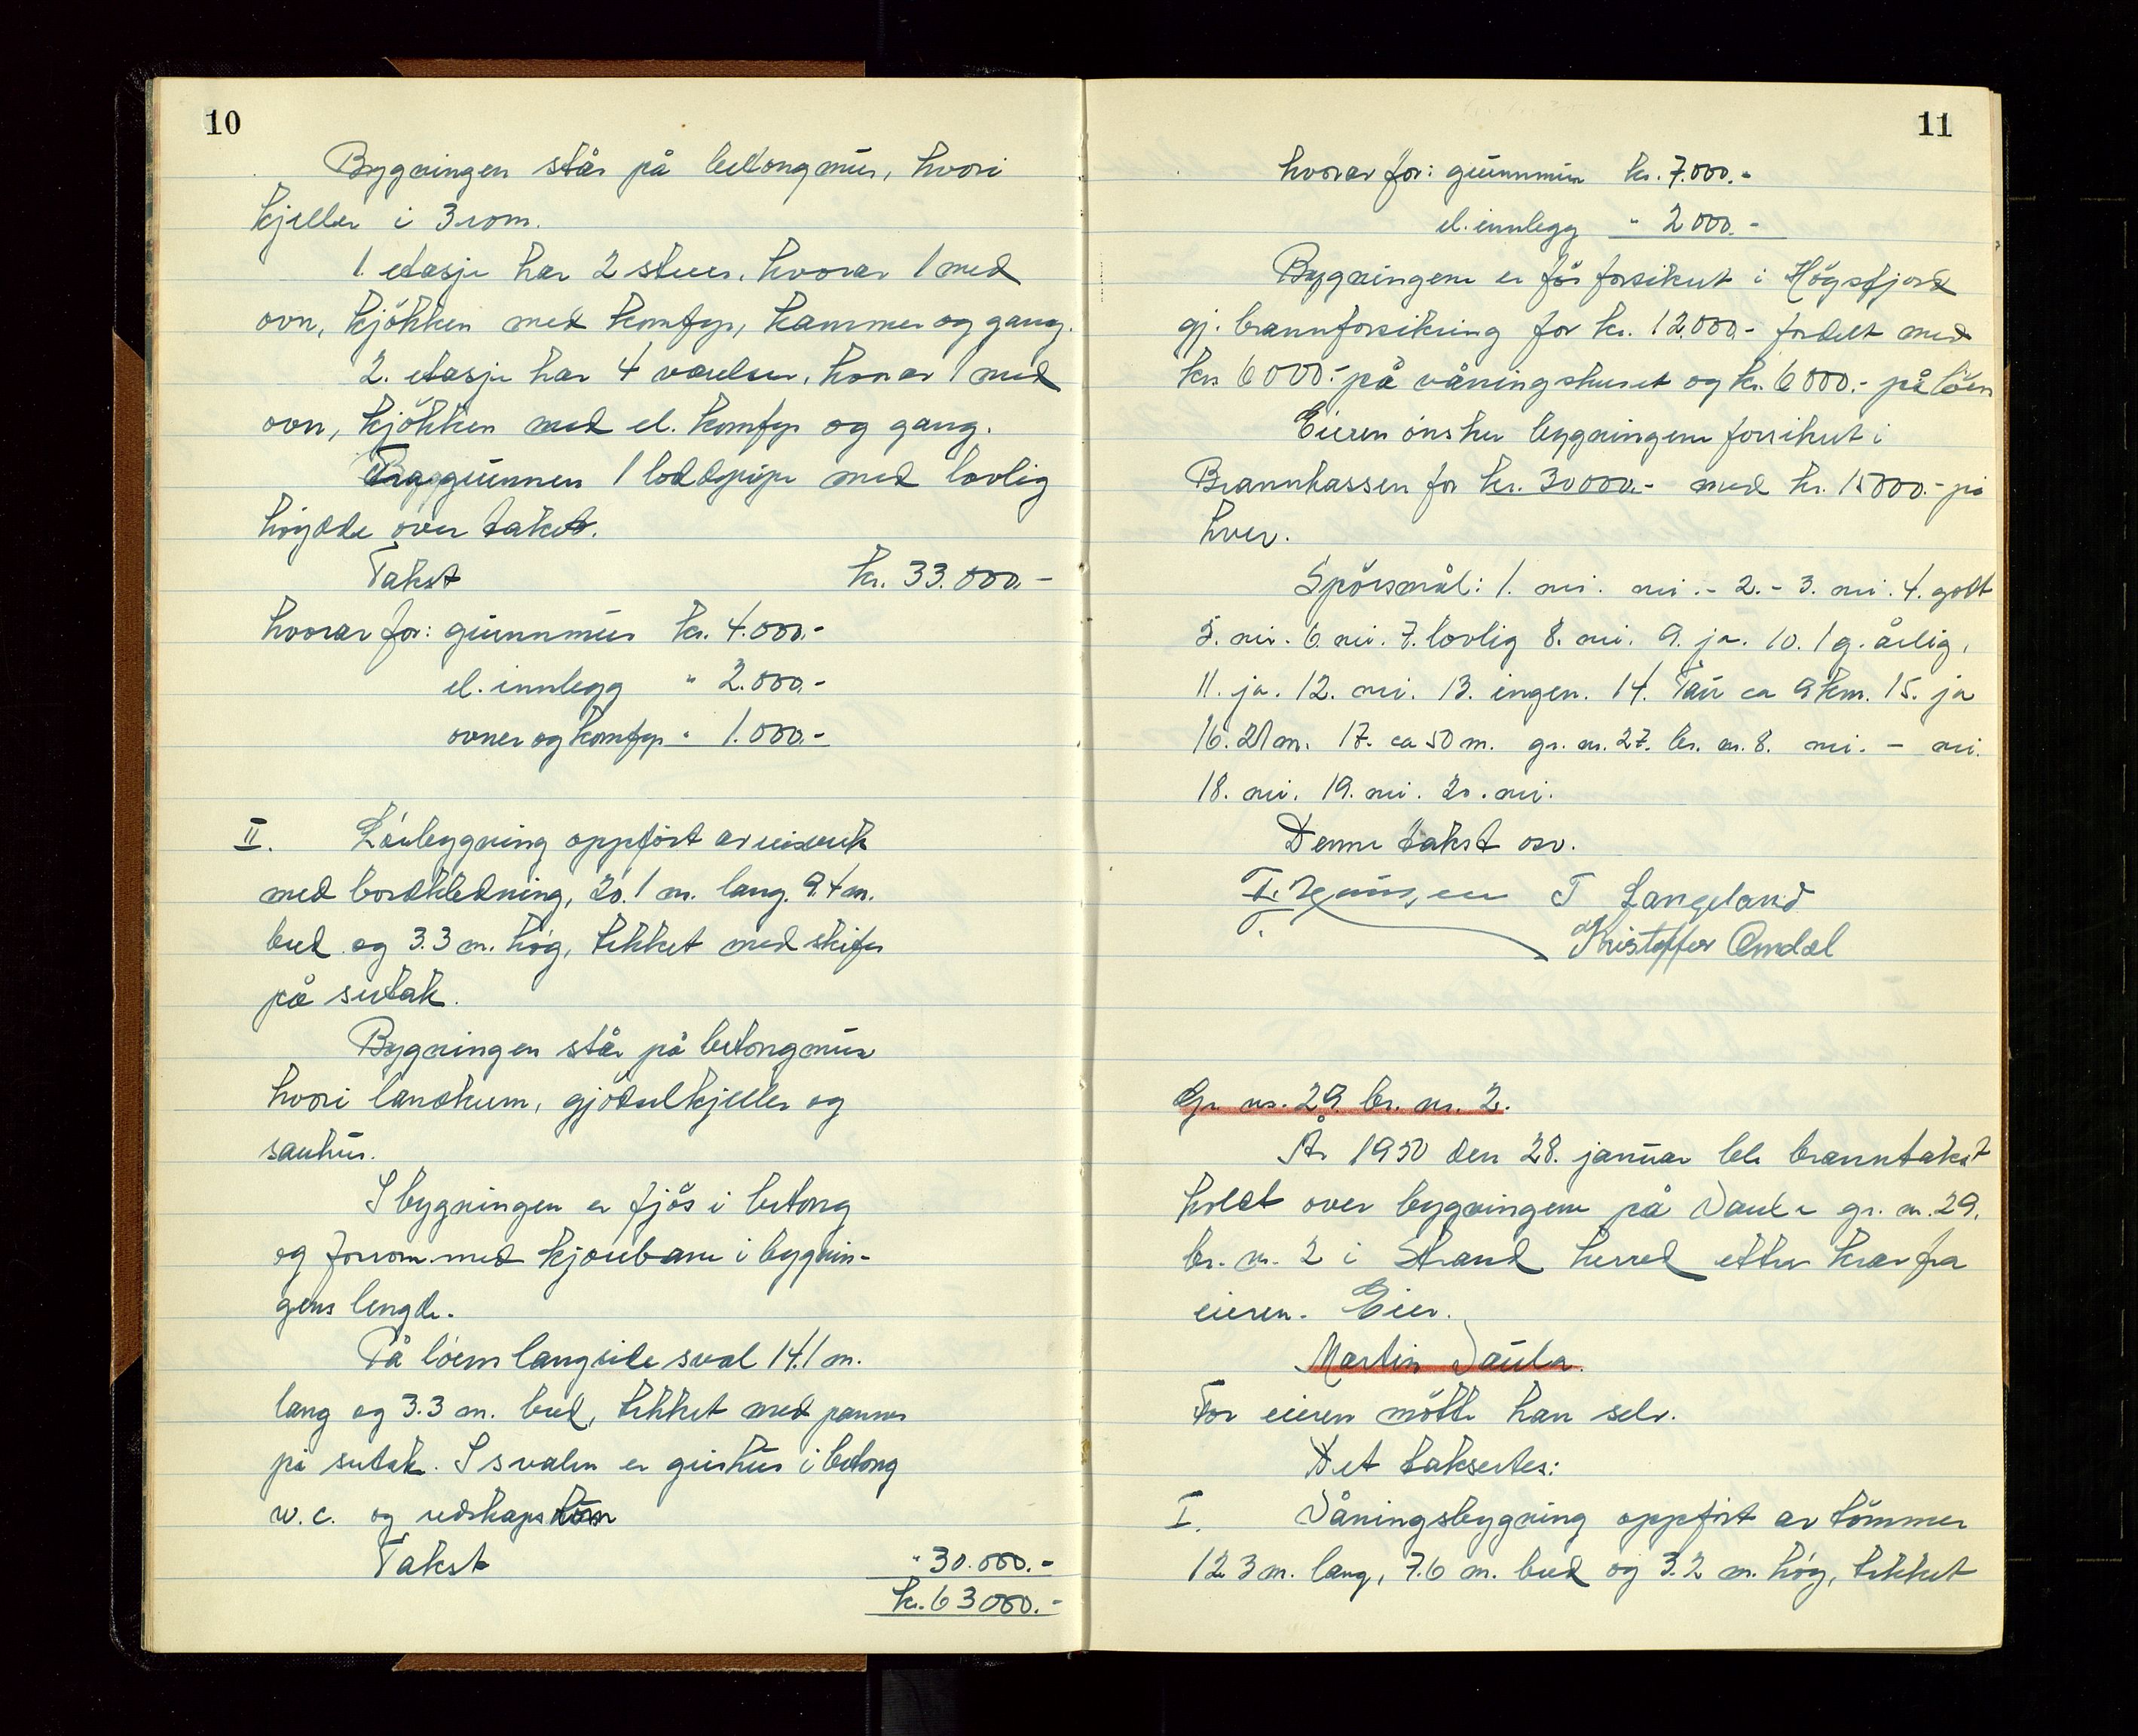 10
Bygningen står på betongmur, hvori
kjeller i 3 rom.
1. etasje har 2 stuer, hvorav 1 med
ovn, kjökken med komfyr, kammer og gang.
2. etasje har 4 værelser, hvorav 1 med
ovn, kjökken med el. komfyr og gang.
Fra grunnen 1 loddpipe med lovlig
höyde over taket.
Takst kr. 33.000.-
hvorav for: grunnmur kr. 4.000.-
el. innlegg " 2.000.-
ovner og komfyr " 1.000.-
II. Löebygning oppfört av reisverk
med bordkledning, 20.1 m. lang. 9.4 m.
bred og 3.3 m. hög, tekket med skifer
på sutak.
Bygningen står på betongmur
hvori landkum, gjödselkjeller og
sauhus.
I bygningen er fjös i betong
og forrom med kjörebane i bygnin-
gens lengde.
På löens langside sval 14.1 m.
lang og 3.3 m. bred, tekket med panner
på sutak. I svalen er grishus i betong
w.c. og redskaps
Takst " 30.000.-
kr. 63000.-
11
hvorav for: grunnmur kr. 7.000.-
el. innlegg " 2000.-
Bygningene er för forsikret i Högsfjord
gj. brannforsikring for kr. 12.000.- fordelt med
kr. 6000.- på våningshuset og kr. 6000.- på löen
Eieren önsker bygningene forsikret i
Brannkassen for kr. 30000.- med kr. 15000.- på
hver.
Spörsmål: 1. nei. nei. - 2. - 3. nei. 4. godt
5. nei. 6. nei. 7. lovlig 8. nei. 9. ja. 10. 1 g. årlig.
11. ja. 12. nei. 13. ingen. 14. Tau ca 9 km. 15. ja
16. 21 m. 17. ca 50 m. gr. nr. 27. br. nr. 8. nei. - nei.
18. nei. 19. nei. 20. nei.
Denne takst osv.
T. T. Langeland
Kristoffer Omdal
Gr. nr. 29. br. nr. 2.
År 1950 den 28. januar ble branntakst
holdt over bygningene på Vaula gr. nr. 29.
br. nr. 2 i Strand herred etter krav fra
eieren. Eier.
Martin Vaula.
For eieren mötte han selv.
Det taksertes:
I. Våningsbygning oppfört av tömmer
12.3 m. lang, 7.6 m. bred og 3.2 m. höy, tekket